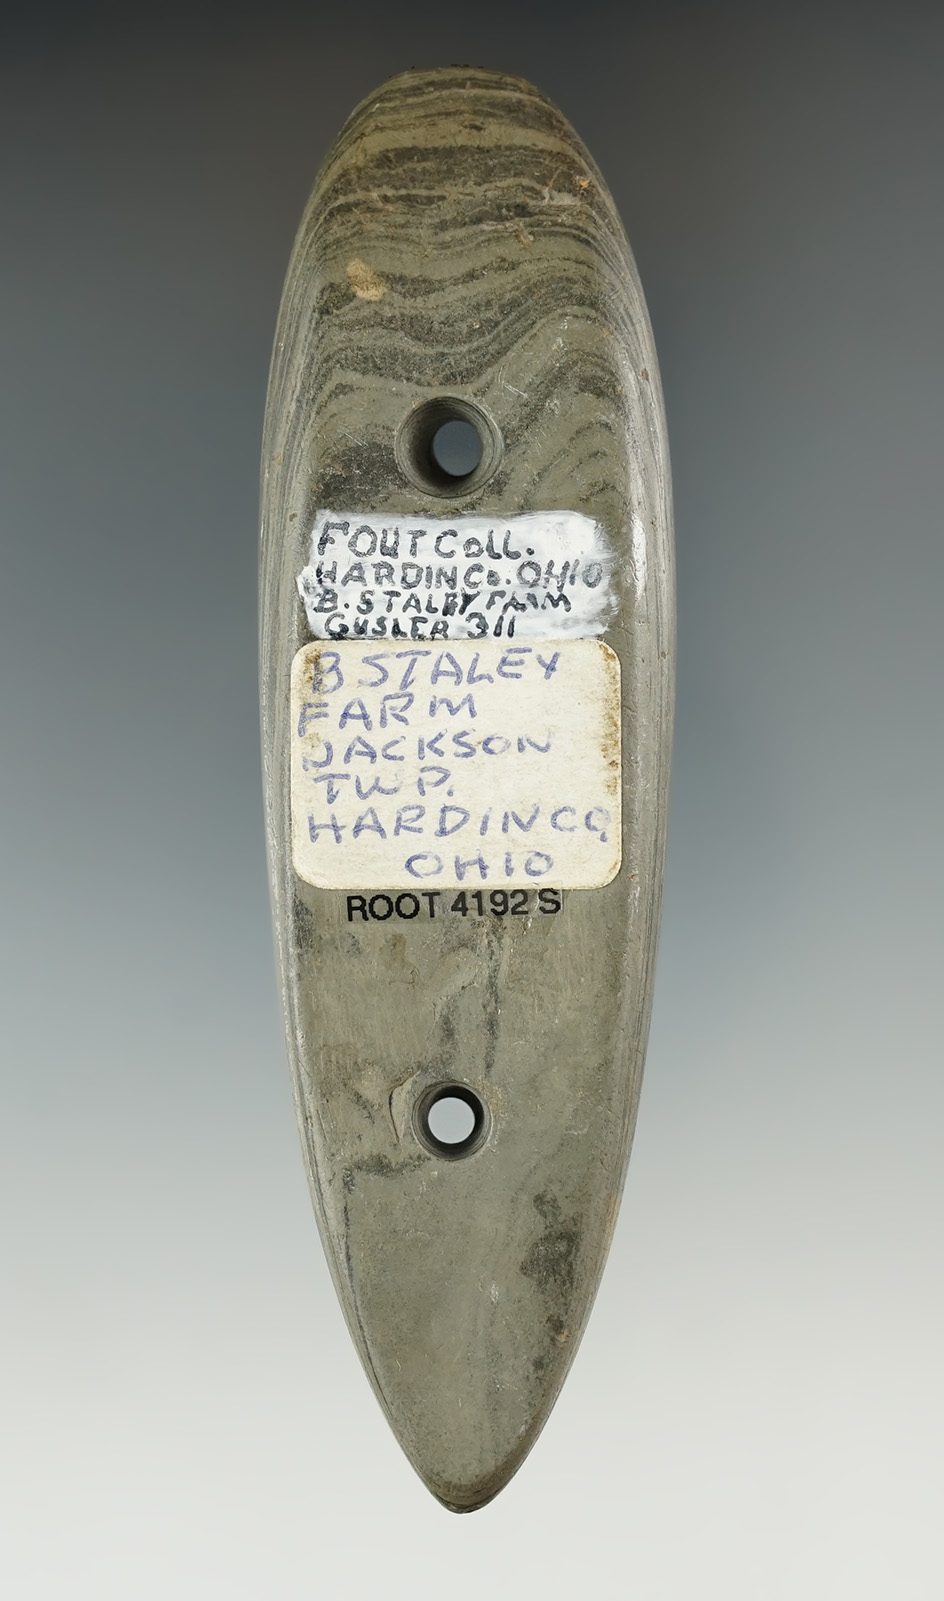 FOUT COLL.
HARDIN Co. OHIO
B. STALEY FARM
GUSLER 311
B STALEY
FARM
JACKSON
TWP.
HARDIN CO
OHIO
ROOT 4192 S